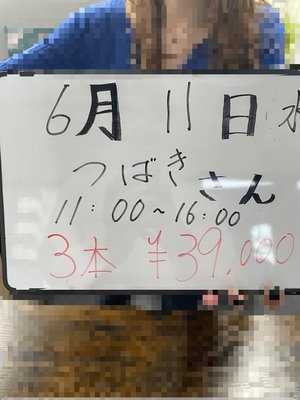 6月11日水
つばきさん
11:00~16:00
3本 ¥39,000